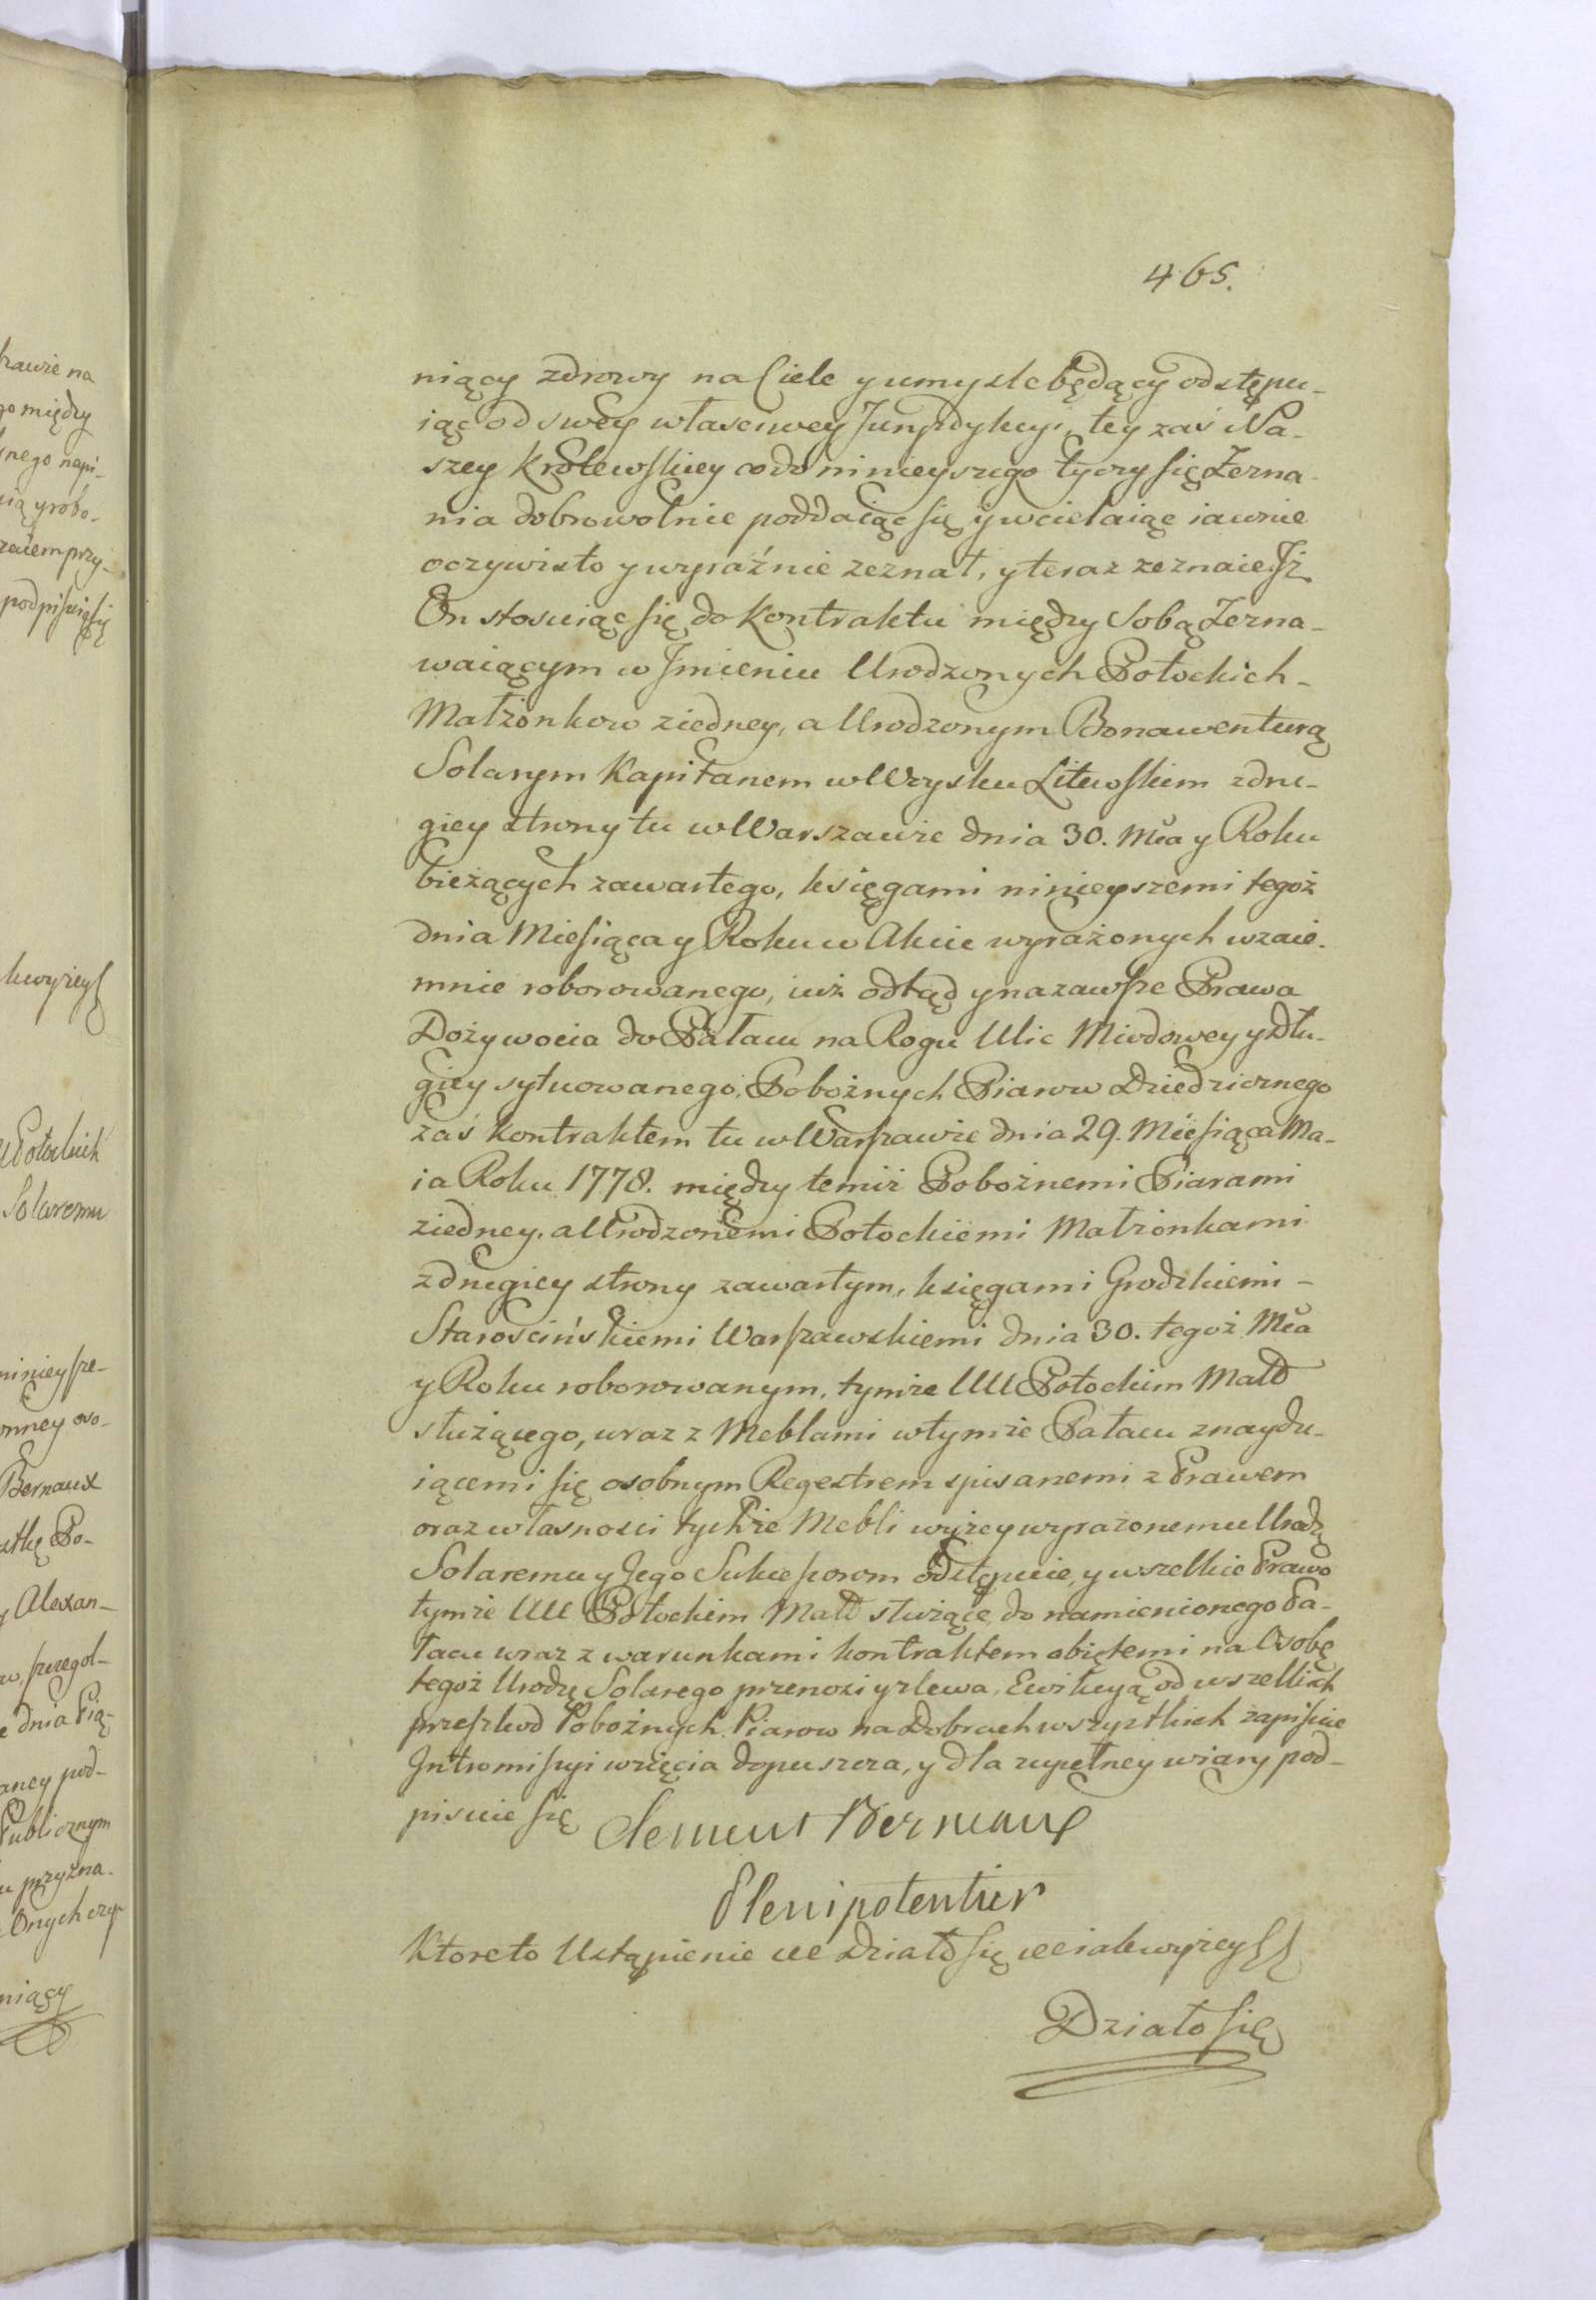 465.
niący zdrowy na Ciele y umysle będący odstępu-
iąc od swey własciwey Jurysdykcyi, tey zaś Na-
szey Krolewskiey co do ninieyszego tyczy się Zezna-
nia dobrowolnie poddaiąc się y wcielaiąc iawnie
oczywisto y wyraźnie zeznał, y teraz zeznaie Jż
On stosuiąc się do Kontraktu między Sobą Zezna-
waiącym w Jmieniu Urodzonych Potockich-
Małżonkow ziedney, a Urodzonym Bonawenturą
Solarym Kapitanem w Woysku Litewskim zdru-
giey strony tu w Warszawie dnia 30. Mca y Roku
bieżących zawartego, księgami ninieyszemi tegoż
dnia Miesiąca y Roku w Akcie wyrażonych wzaie-
mnie roborowanego, iuż odtąd y nazawsze Prawa
Dożywocia do Pałacu na Rogu Ulic Miodowey y Dłu-
giey sytuowanego, Pobożnych Piarow Dziedzicznego
zaś Kontraktem tu w Warszawie dnia 29. Miesiąca Ma-
ia Roku 1778. między temiż Pobożnemi Piarami
ziedney, a Urodzonemi Potockiemi Małżonkami
zdrugiey strony zawartym, księgami Grodzkiemi-
Starościńskiemi Warszawskiemi dnia 30. tegoż Mca
y Roku roborowanym, tymże UU Potockim Małż
służącego, wraz z Meblami wtymże Pałacu znaydu-
iącemi się osobnym Regestrem spisanemi z Prawem
oraz własnosci tychże Mebli wyżey wyrażonemu Urodz
Solaremu y Jego Sukcessorom odstępuie, y wszelkie Prawo
tymże UU Potockim Małż służące, do namienionego Pa-
łacu wraz z warunkami kontraktem obiętemi na Osobę
tegoż Urodz Solarego przenosi y zlewa, Ewikcyą od wszelkich
przeszkod Pobożnych Piarow na Dobrach wszystkich zapisuie
Jntromissyi wzięcia dopuszcza, y dla zupełney wiary pod-
pisuie się Clement Bernaux
Plenipotentier
Ktore to Ustąpienie Działo się iak wyżey
Działo się